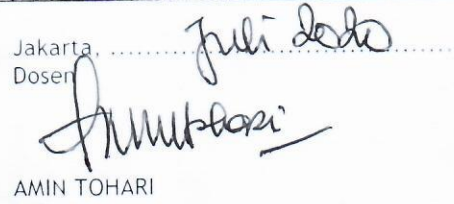 Jakarta, .......... Juli 2020 ..........
Dosen
AMIN TOHARI